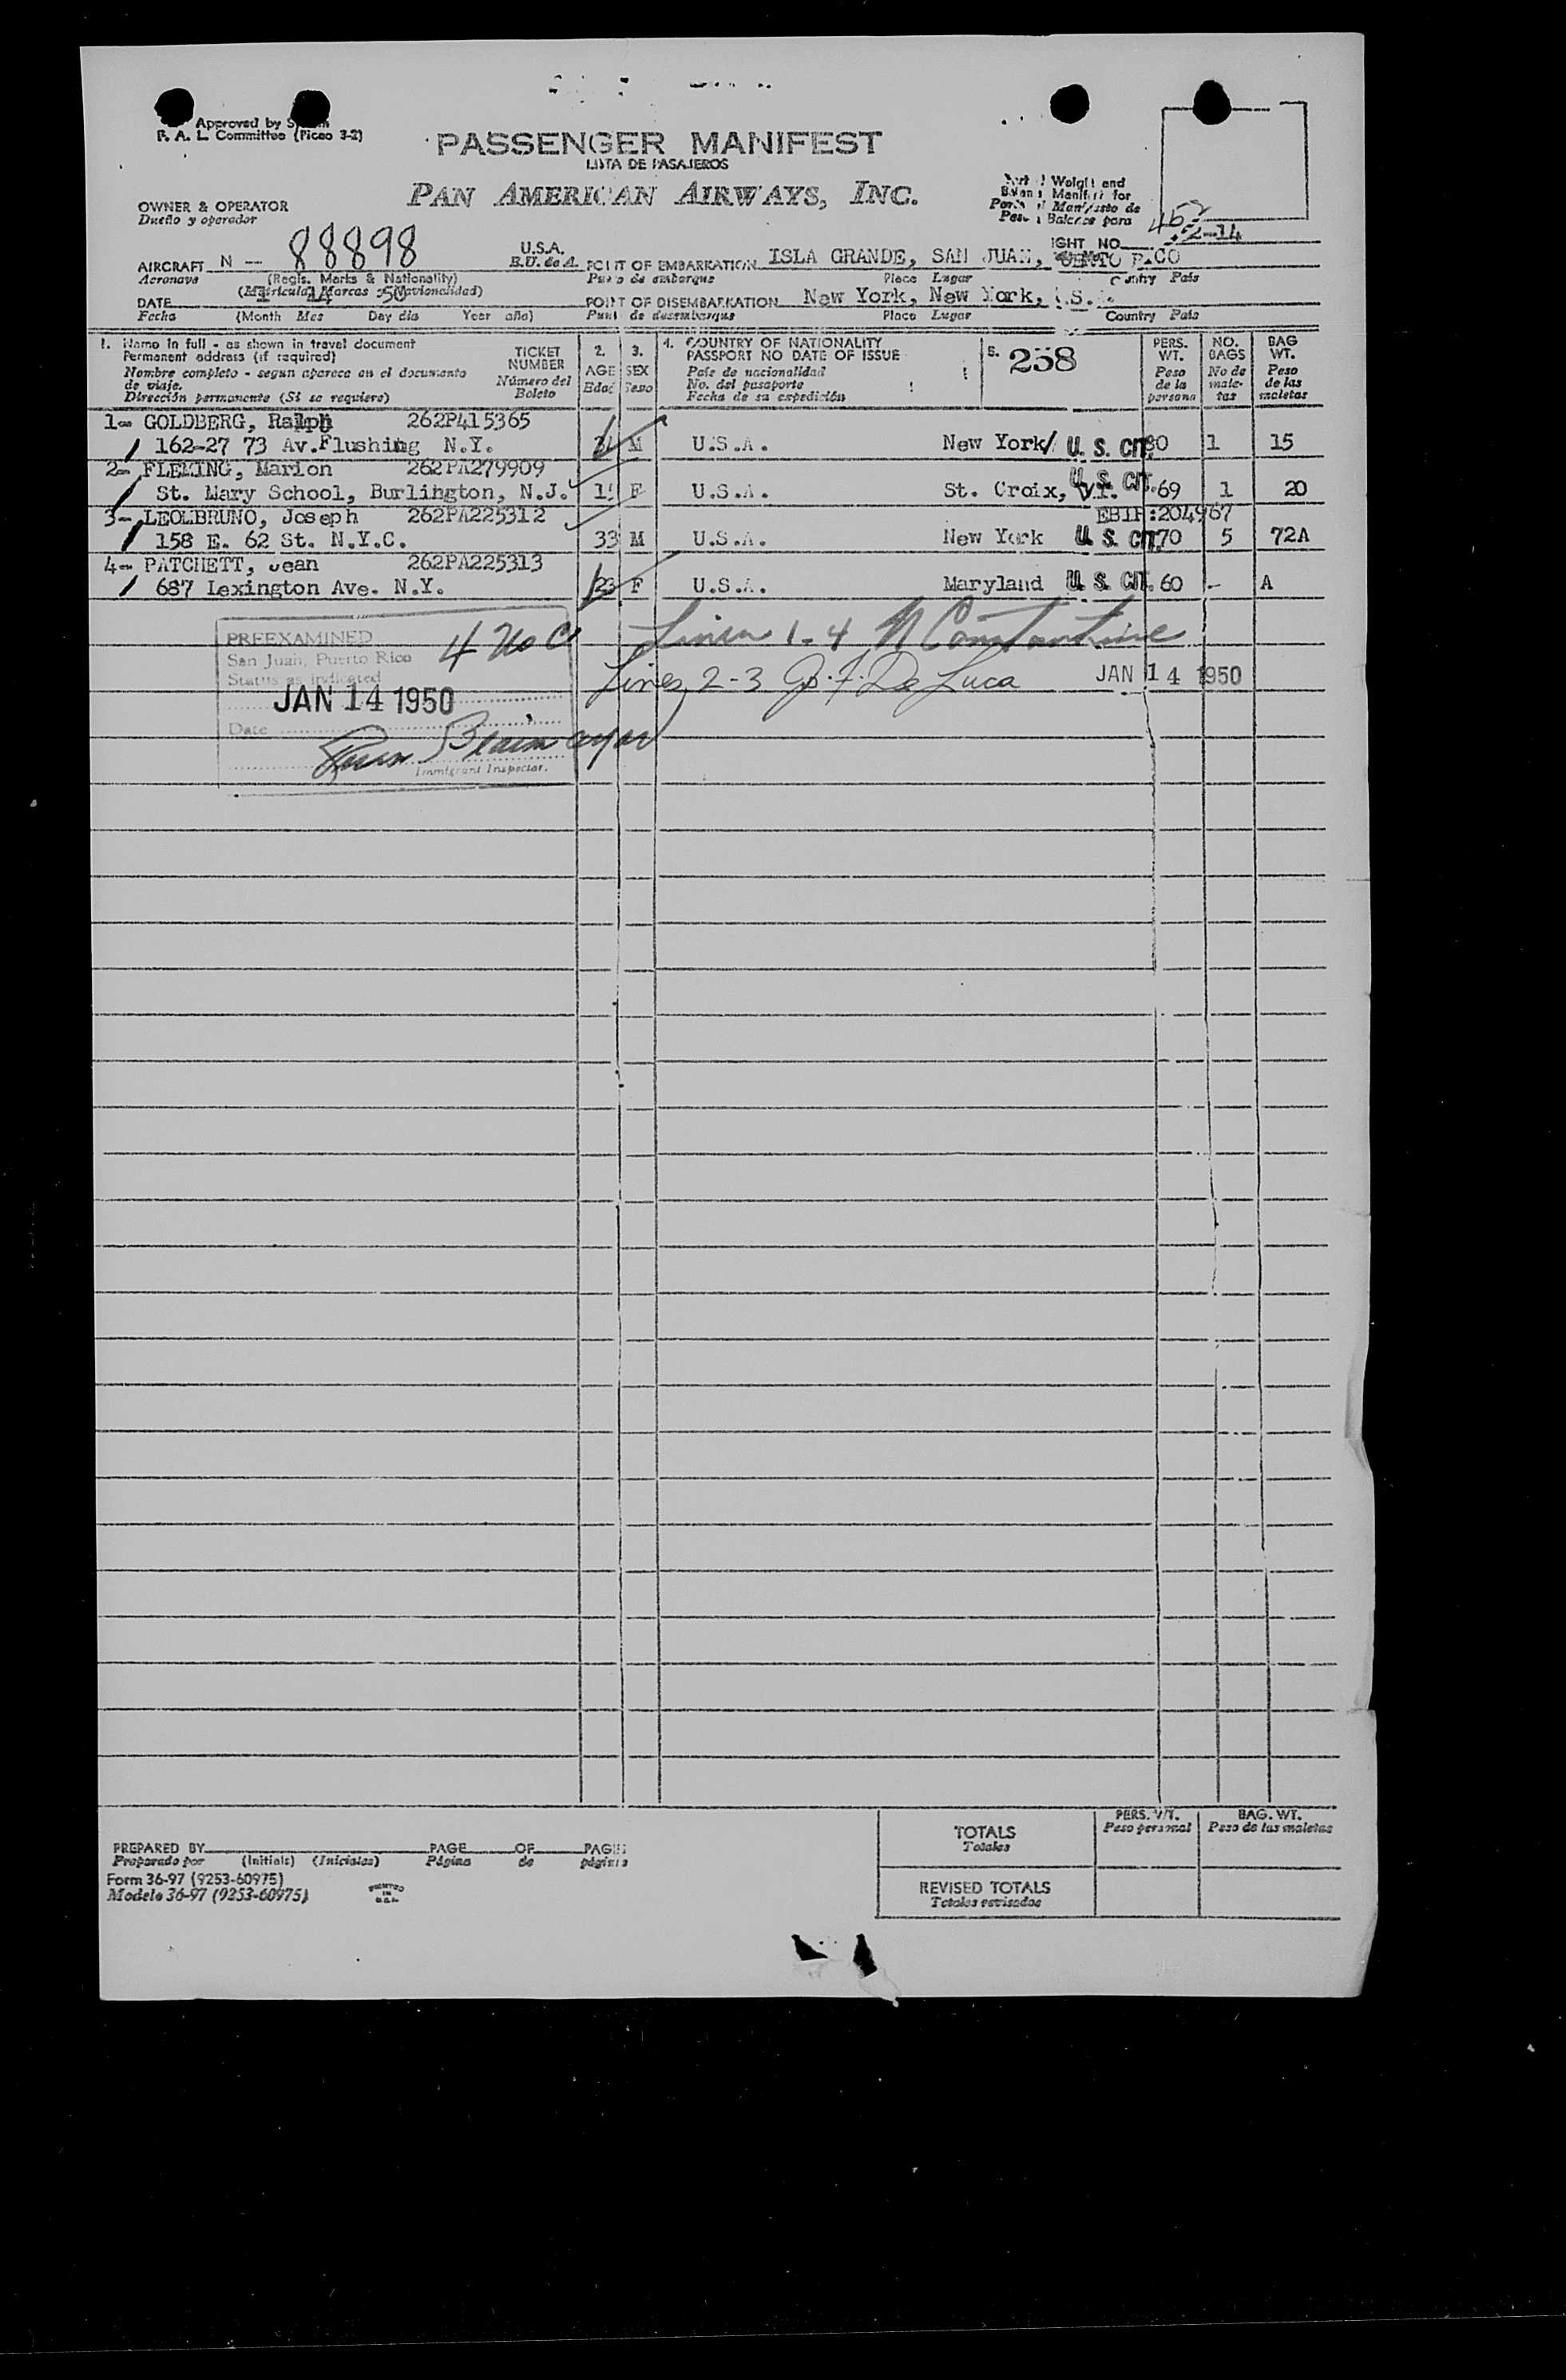 Approved by
P. A. L. Committee (Picao 3-2)
PASSENGER MANIFEST
LISTA DE PASAJEROS
PAN AMERICAN AIRWAYS, INC.
Weight and
Manifest for
Manifiesto de
Balance para
OWNER & OPERATOR
Dueño y operador
AIRCRAFT N - 88898 U.S.A.
Aeronave (Regis. Marks & Nationality) E.U. de A.
(Matricula Marcas Nacionalidad)
462
FLIGHT NO. 2-14
POINT OF EMBARKATION ISLA GRANDE, SAN JUAN, PUERTO RICO
Puerto de embarque Place Lugar Country País
DATE 1 14 50
Fecha (Month Mes Day dia Year año)
POINT OF DISEMBARKATION New York, New York, U.S.
Punto de desembarque Place Lugar Country País
1. Name in full - as shown in travel document
Permanent address (if required)
Nombre completo - segun aparece en el documento
de viaje.
Dirección permanente (Si se requiere)
TICKET
NUMBER
Número del
Boleto
2.
AGE
Edad
3.
SEX
Sexo
4. COUNTRY OF NATIONALITY
PASSPORT NO DATE OF ISSUE
País de nacionalidad
No. del pasaporte
Fecha de su expedición
5. 258
PERS.
WT.
Peso
de la
persona
NO.
BAGS
No de
male-
tas
BAG
WT.
Peso
de las
maletas
1- GOLDBERG, Ralph 262P415365
162-27 73 Av. Flushing N.Y. M U.S.A. New York U. S. CIT. 80 1 15
2- FLEMING, Marion 262PA279909
St. Mary School, Burlington, N.J. F U.S.A. St. Croix, V.I. U. S. CIT. 69 1 20
3- LEOLBRUNO, Joseph 262PA225312 EBIH:204967
158 E. 62 St. N.Y.C. 33 M U.S.A. New York U. S. CIT. 70 5 72A
4- PATCHETT, Jean 262PA225313
687 Lexington Ave. N.Y. 23 F U.S.A. Maryland U. S. CIT. 60 - A
PREEXAMINED
San Juan, Puerto Rico
Status as indicated
JAN 14 1950
Date
Immigrant Inspector.
4 USC
Lines 1-4 N Constantine
Lines 2-3 F. De Luca JAN 14 1950
PREPARED BY PAGE OF PAGES
Preparado por (Initials) (Iniciales) Página de páginas
Form 36-97 (9253-60975)
Modelo 36-97 (9253-60975)
PRINTED
IN
U.S.A.
TOTALS
Totales
PERS. WT.
Peso personal
BAG. WT.
Peso de las maletas
REVISED TOTALS
Totales revisados